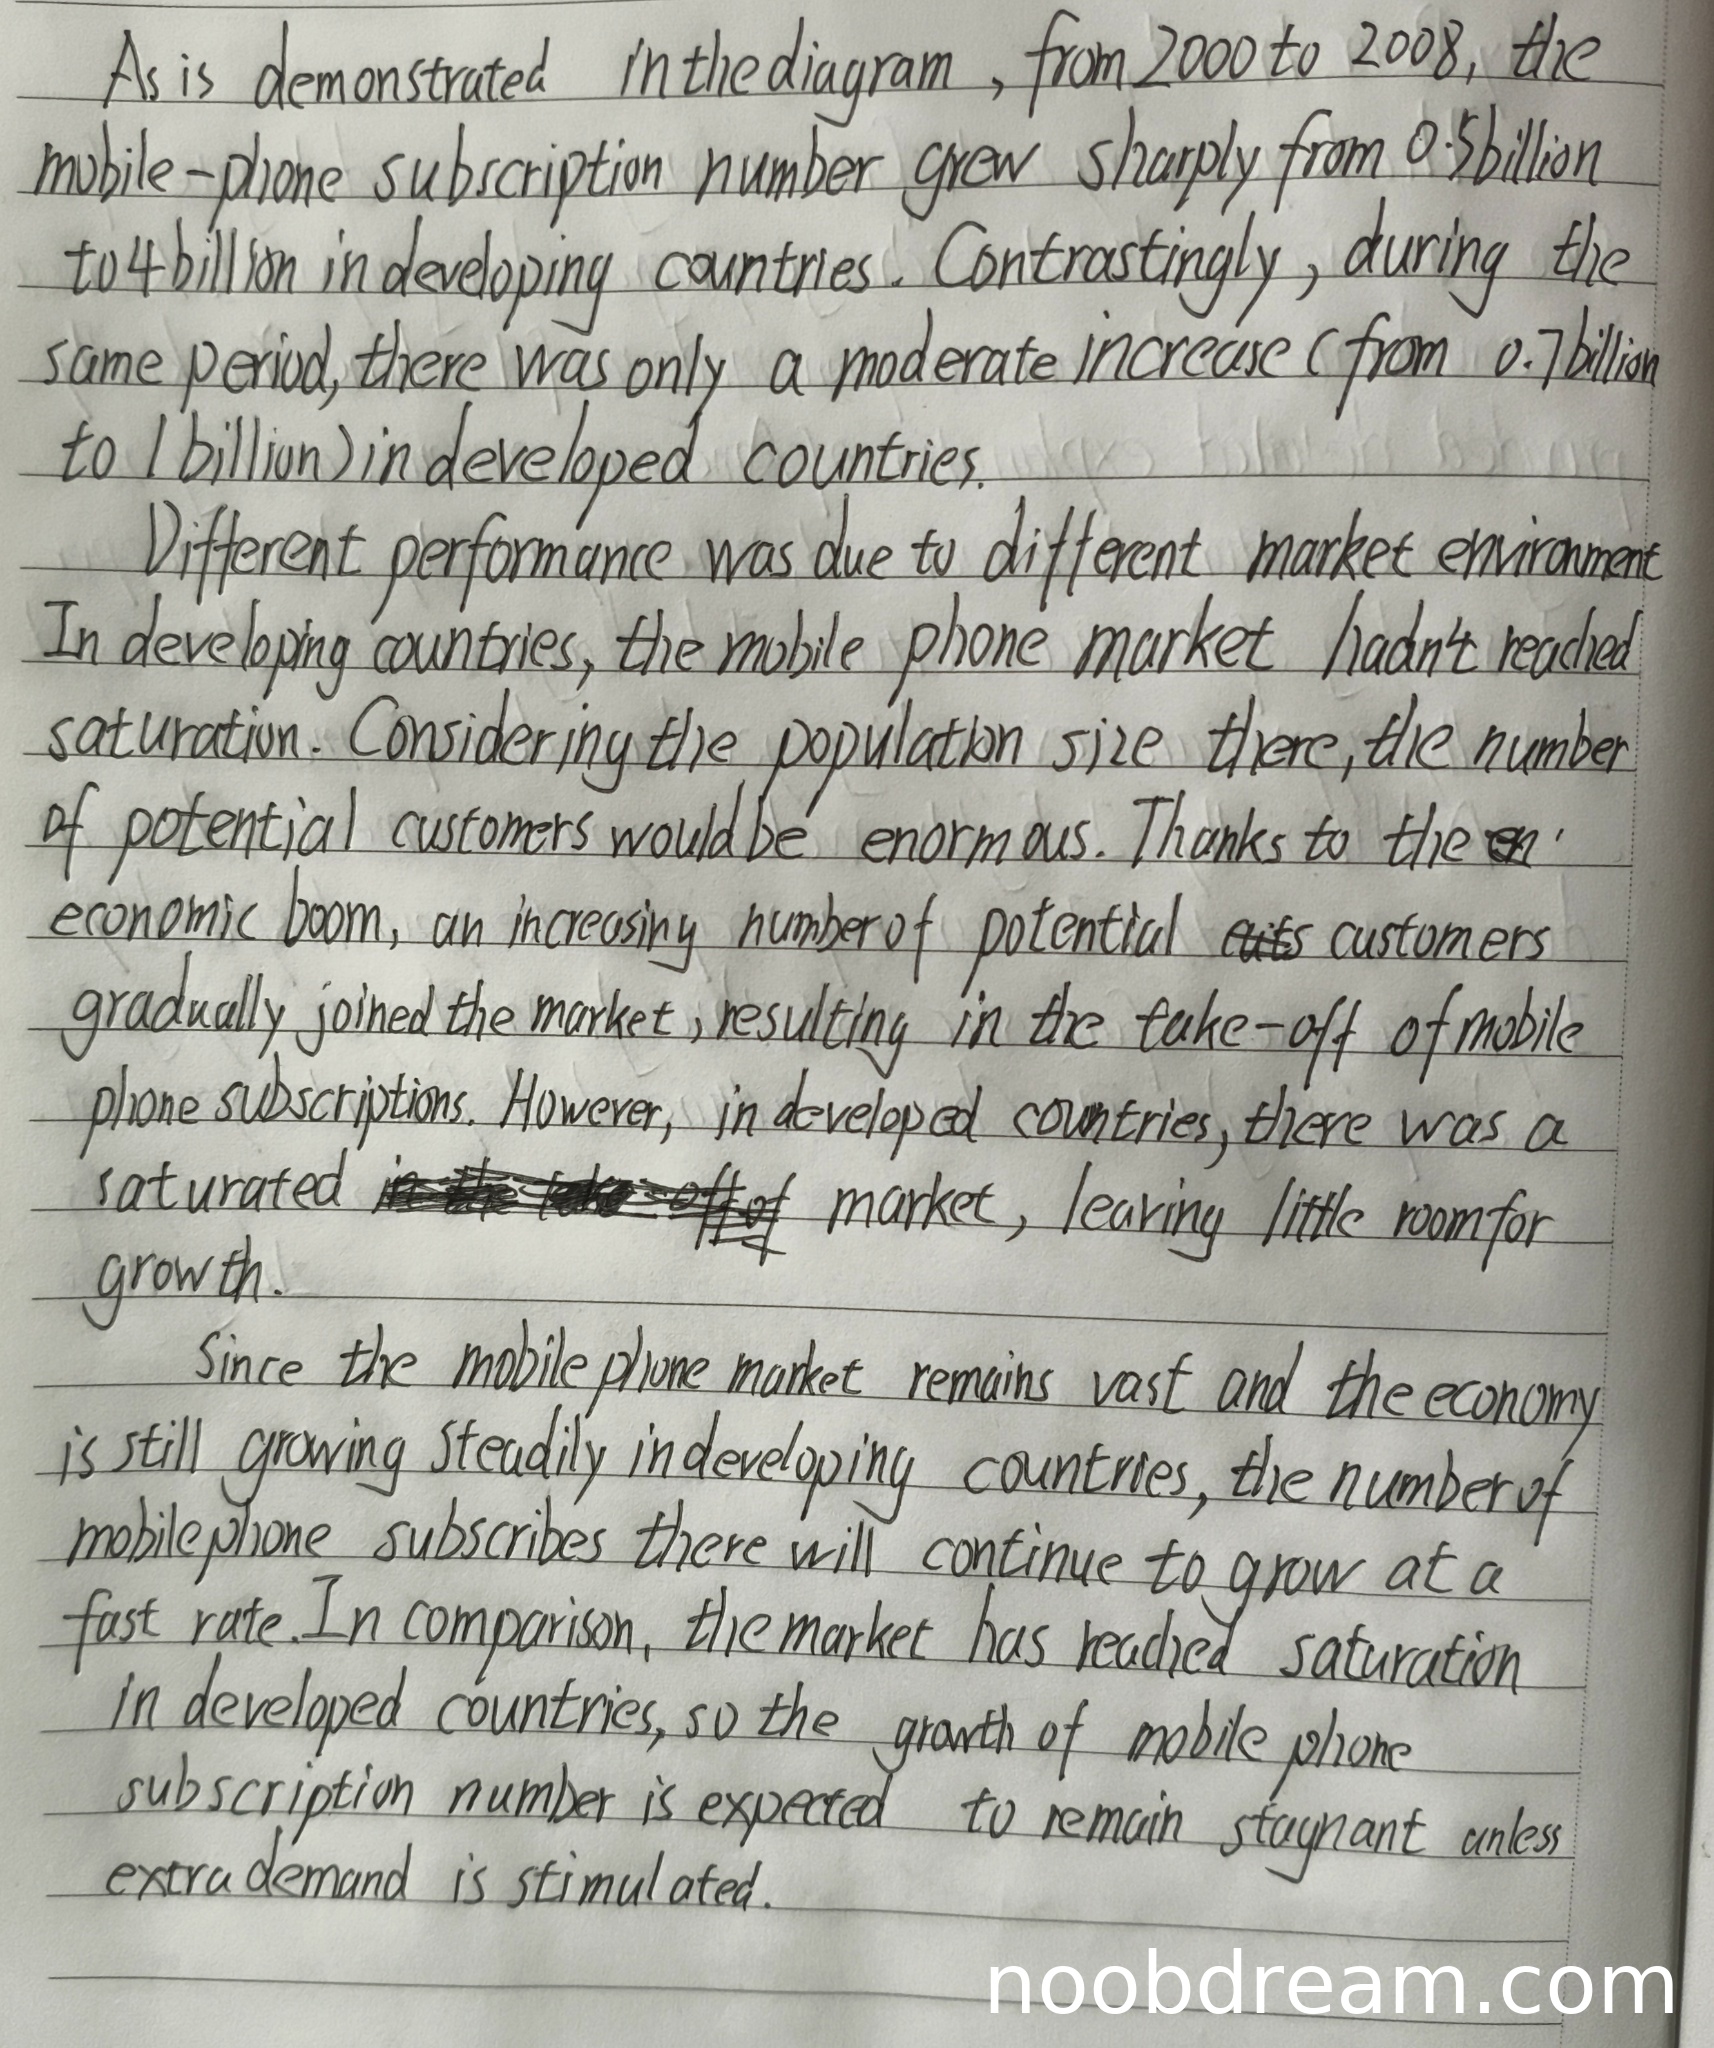 As is demonstrated in the diagram, from 2000 to 2008, the
mobile-phone subscription number grew sharply from 0.5 billion
to 4 billion in developing countries. Contrastingly, during the
same period, there was only a moderate increase (from 0.7 billion
to 1 billion) in developed countries.
Different performance was due to different market environment
In developing countries, the mobile phone market hadn't reached
saturation. Considering the population size there, the number
of potential customers would be enormous. Thanks to the
economic boom, an increasing number of potential customers
gradually joined the market, resulting in the take-off of mobile
phone subscriptions. However, in developed countries, there was a
saturated market, leaving little room for
growth.
Since the mobile phone market remains vast and the economy
is still growing steadily in developing countries, the number of
mobile phone subscribes there will continue to grow at a
fast rate. In comparison, the market has reached saturation
in developed countries, so the growth of mobile phone
subscription number is expected to remain stagnant unless
extra demand is stimulated.
noobdream.com